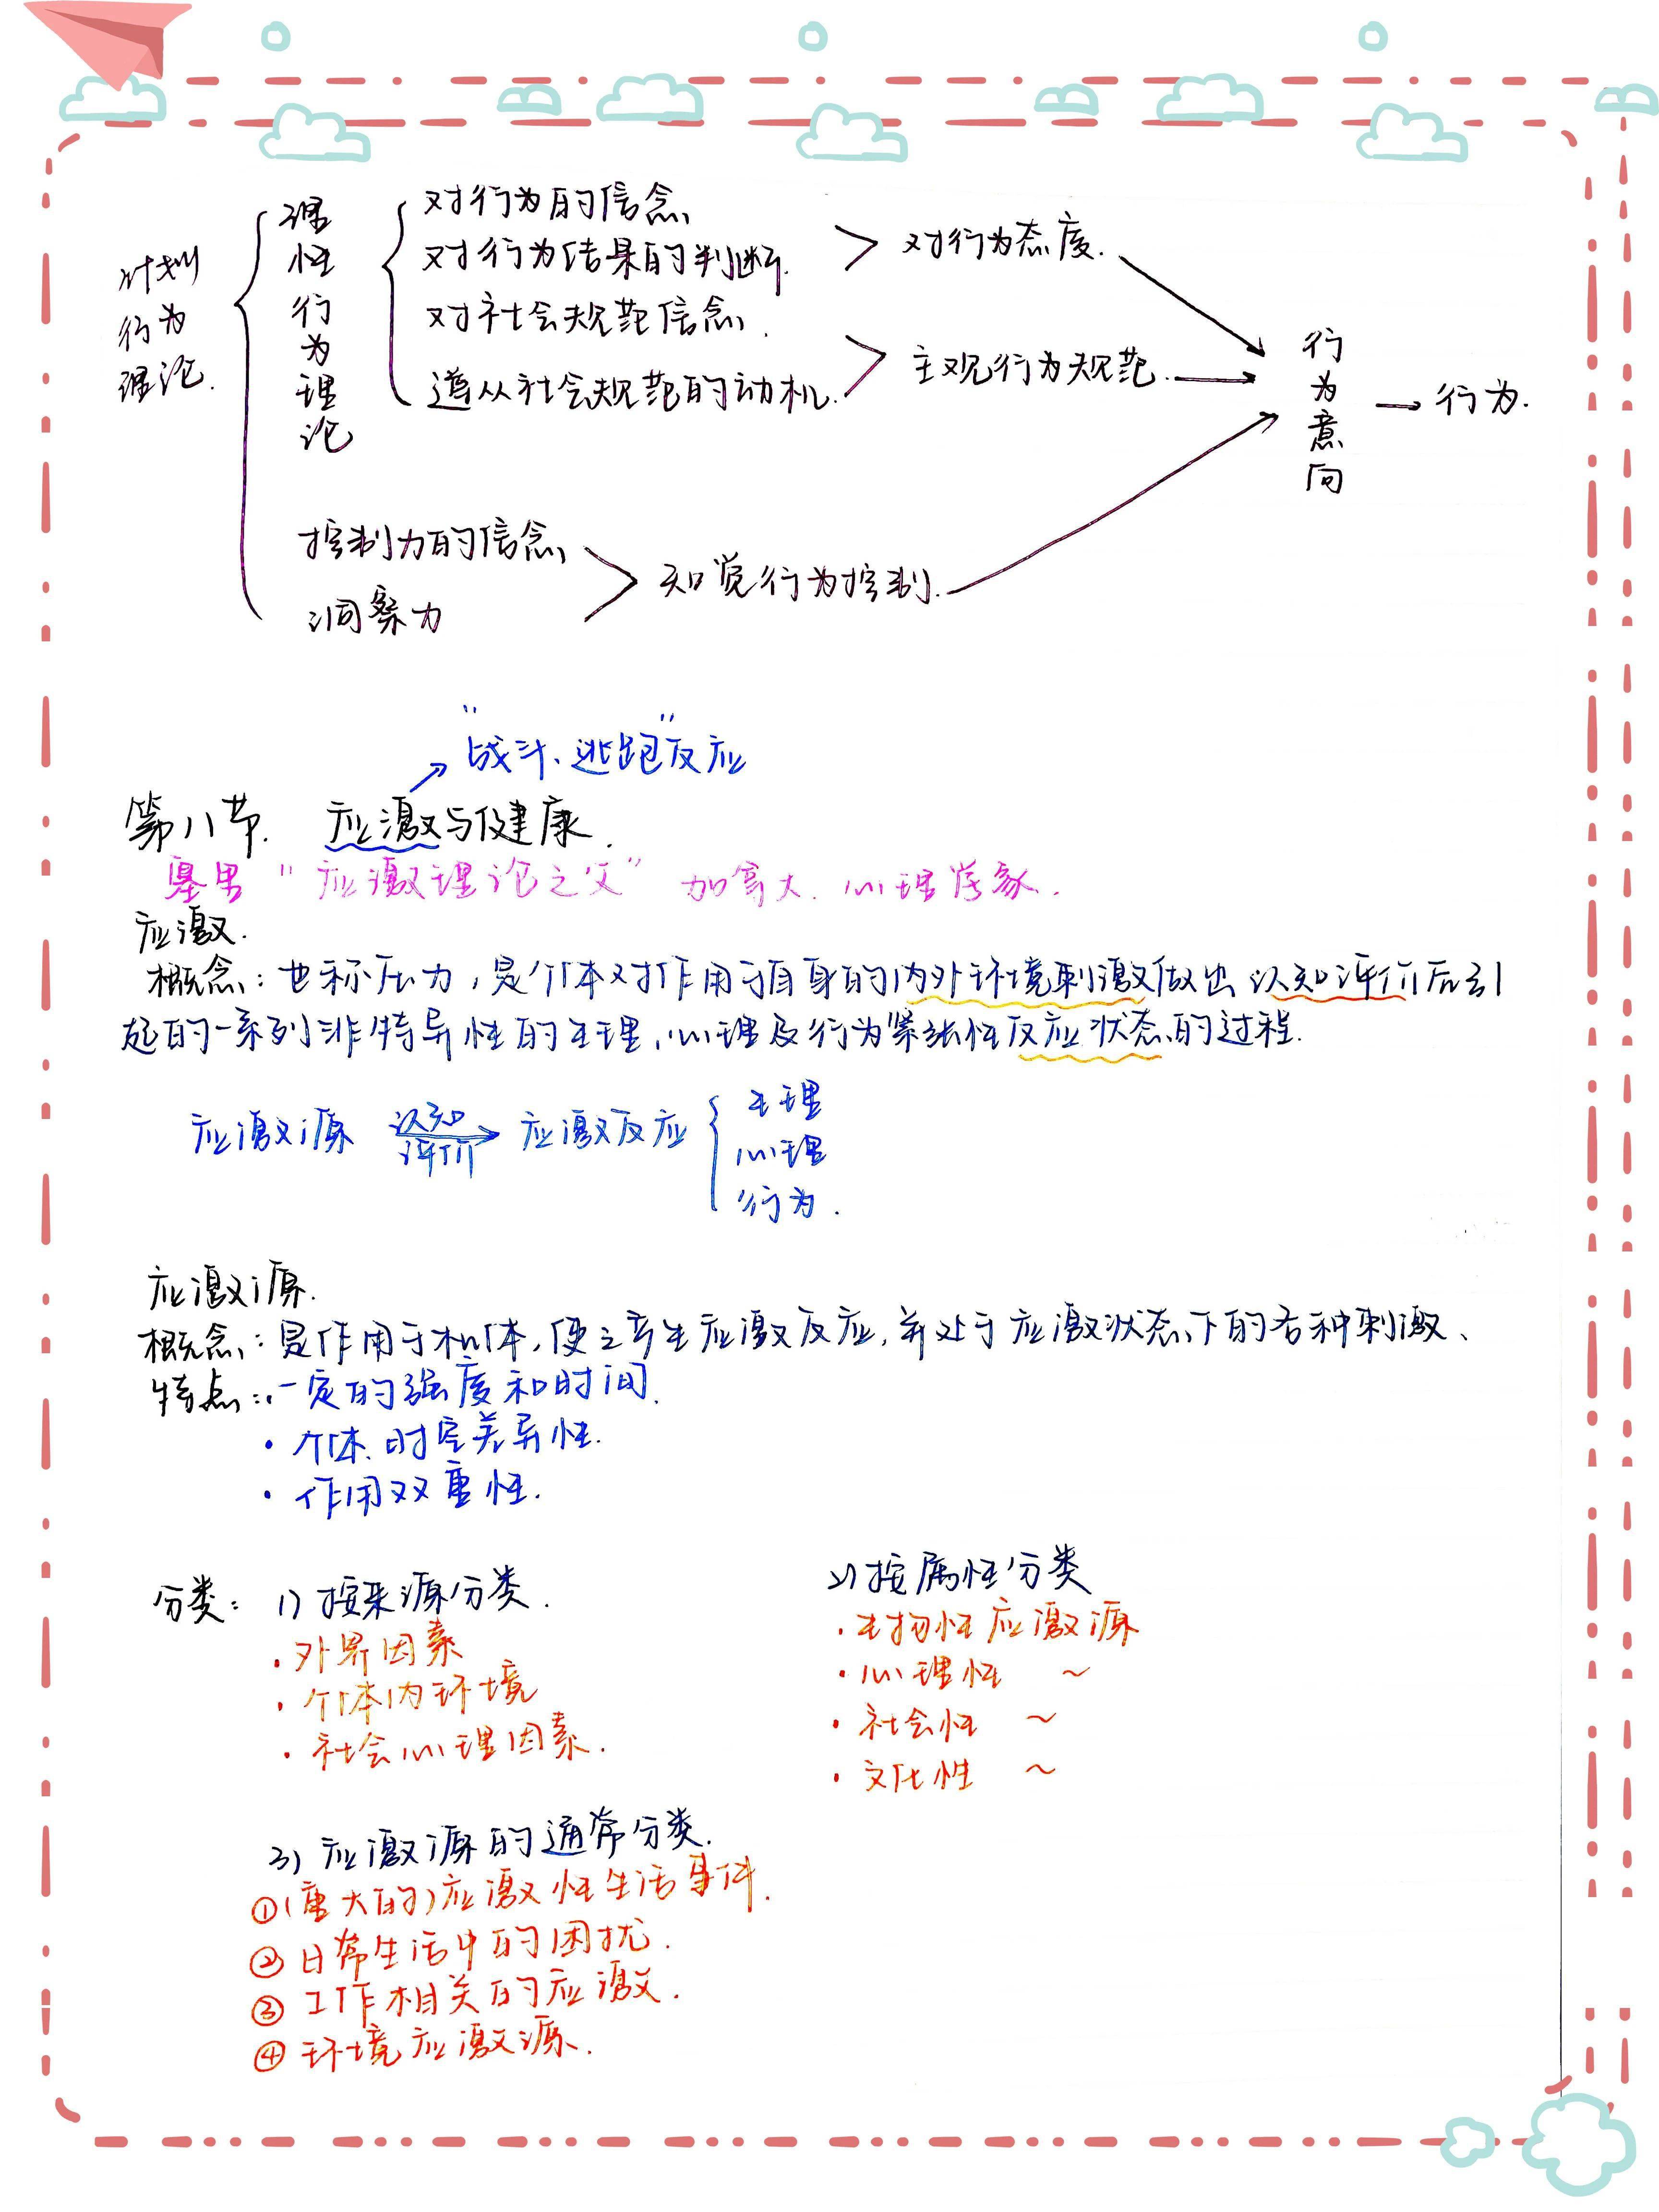 计划
行为
理论.
理
性
行
为
理
论
对行为的信念
对行为结果的判断.
对社会规范信念.
遵从社会规范的动机.
对行为态度.
主观行为规范.
控制力的信念
洞察力
知觉行为控制.
行
为
意
向
行为.
"战斗、逃跑"反应
第八节. 应激与健康.
塞里 "应激理论之父" 加拿大. 心理学家.
应激.
概念: 也称压力, 是个体对作用于自身的内外环境刺激做出认知评价后引
起的一系列非特异性的生理,心理及行为紧张性反应状态的过程.
应激源 认知评价 应激反应
生理
心理
行为.
应激源.
概念: 是作用于机体,使之产生应激反应,并处于应激状态下的各种刺激、
特点: · 一定的强度和时间.
· 个体、时空差异性.
· 作用双重性.
分类: 1) 按来源分类.
· 外界因素
· 个体内环境
· 社会心理因素.
2) 按属性分类
· 生物性应激源
· 心理性 ~
· 社会性 ~
· 文化性 ~
3) 应激源的通常分类.
①(重大的)应激性生活事件.
②日常生活中的困扰.
③工作相关的应激.
④环境应激源.